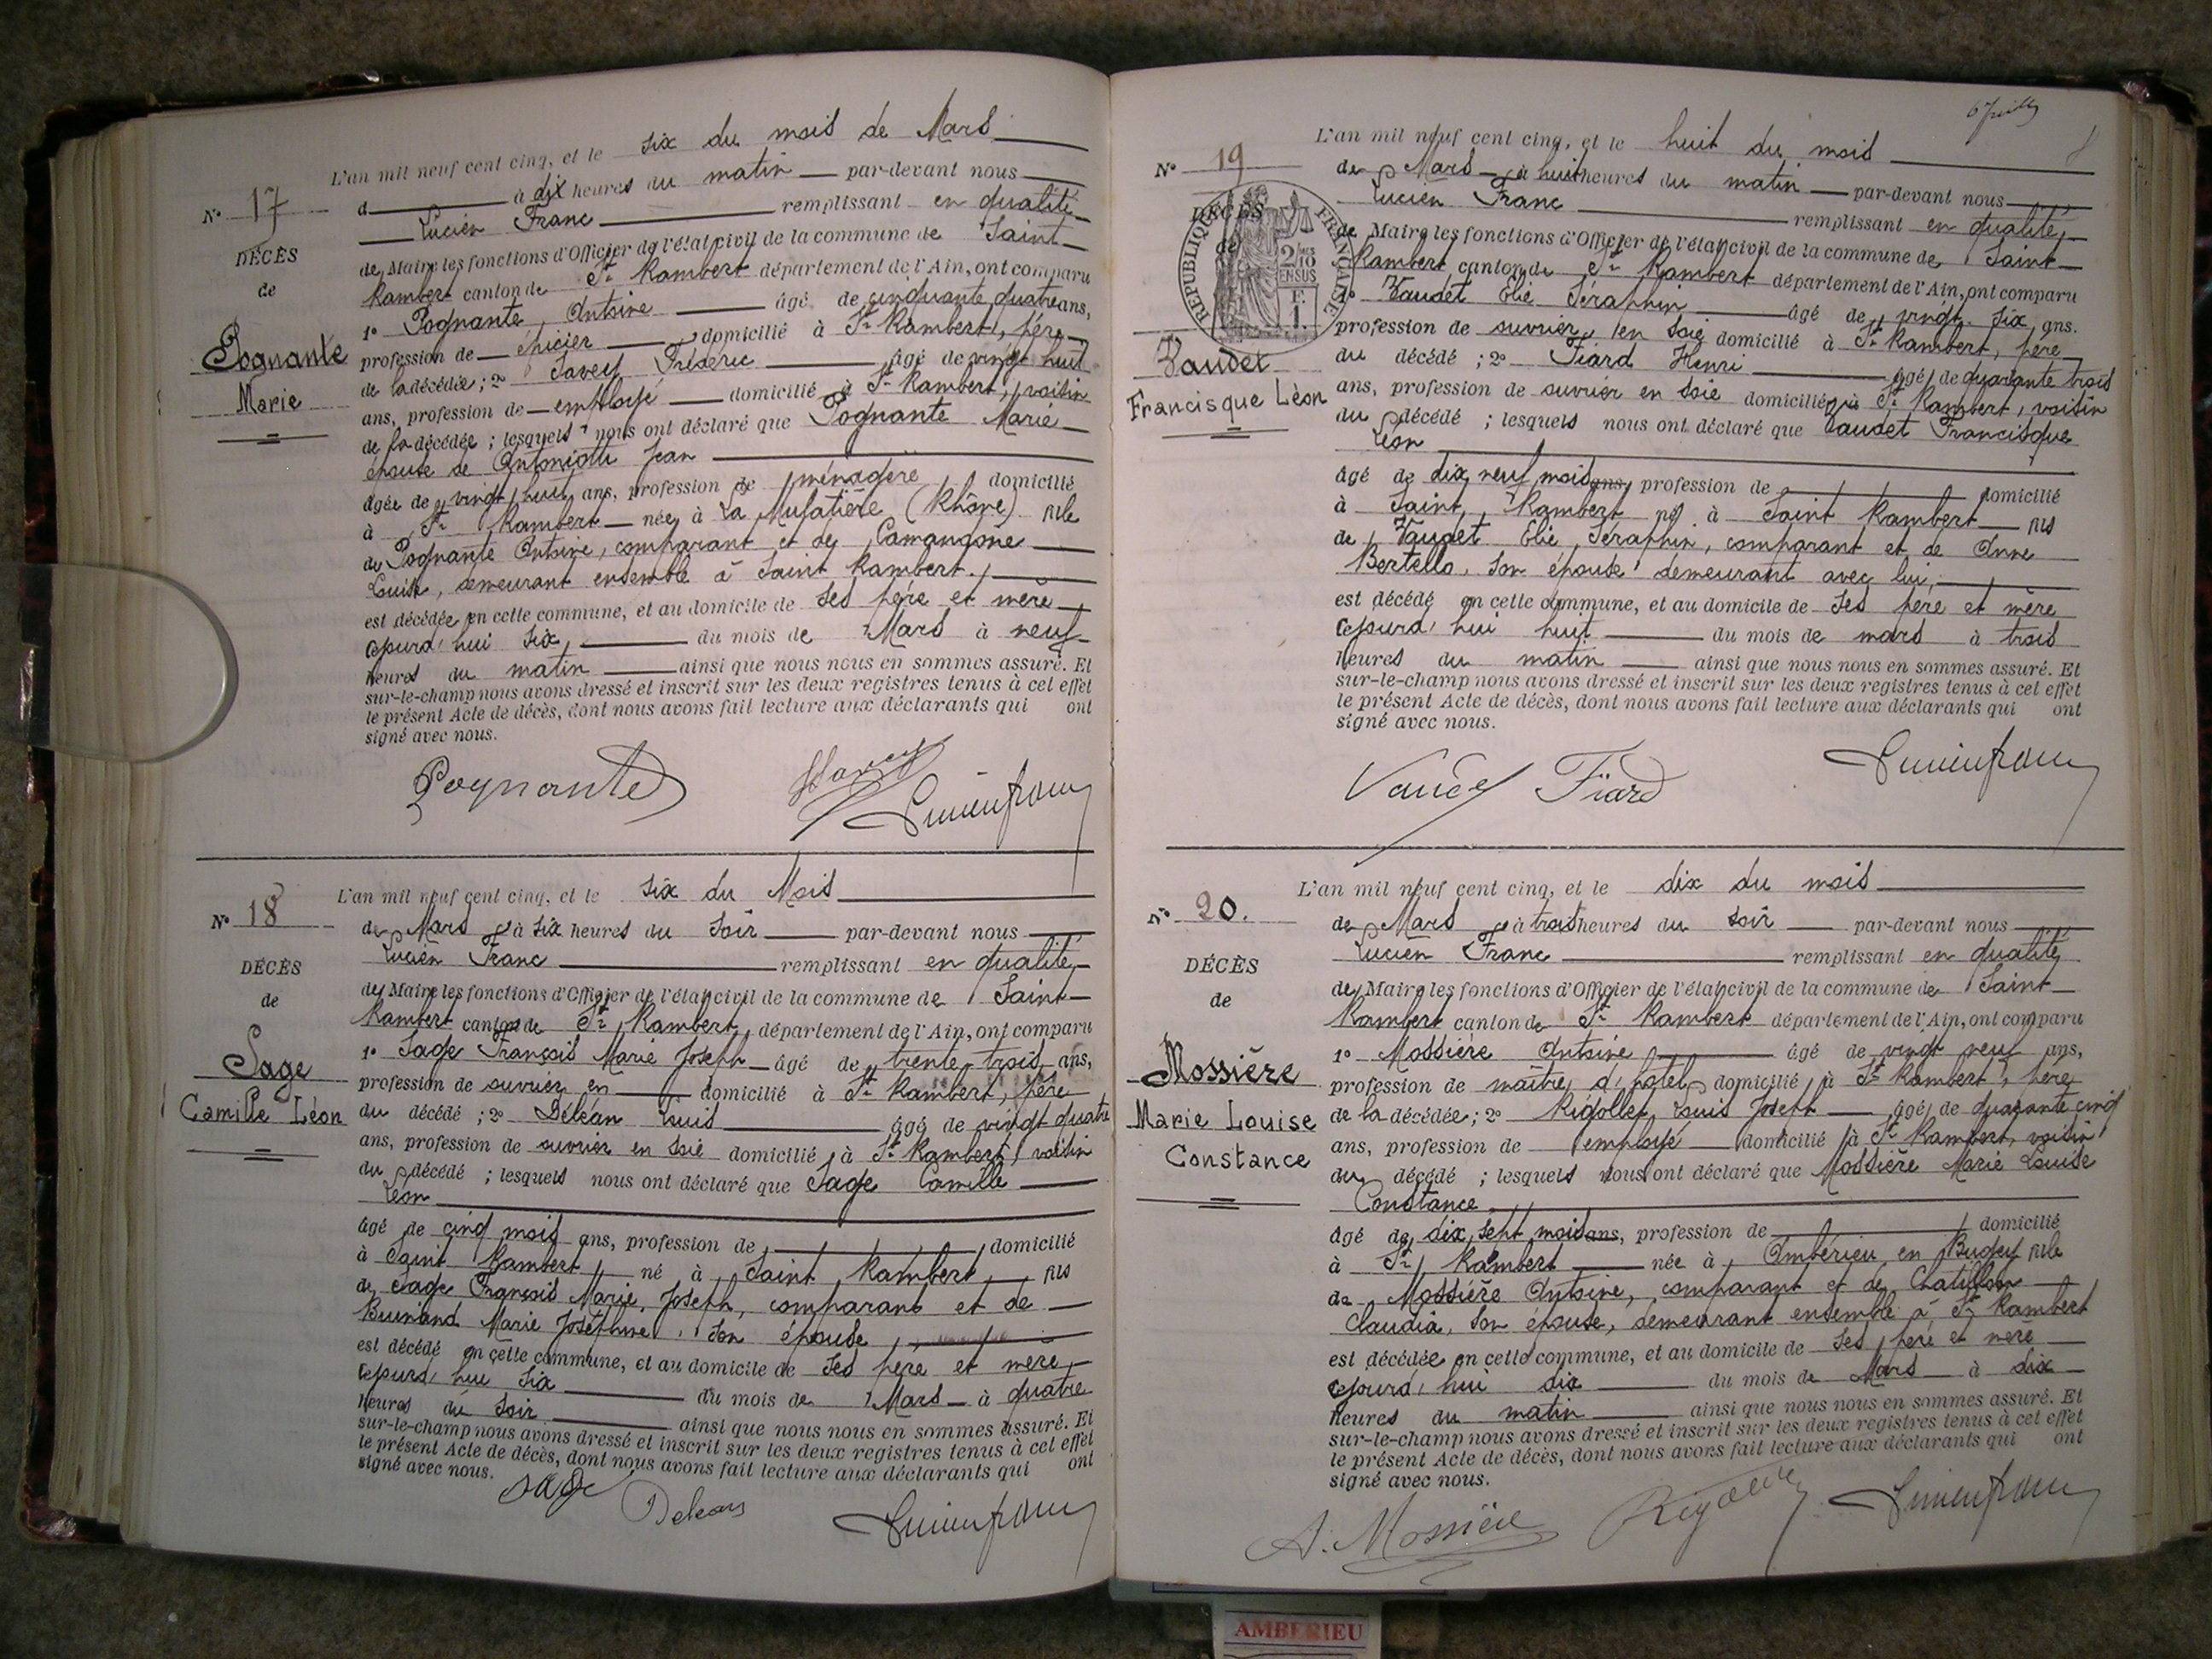 L'an mil neuf cent cinq, et le six du mois de Mars
N° 17
d à dix heures du matin par-devant nous
Lucien Franc remplissant en qualité
DÉCÈS
de Maire les fonctions d'Officier de l'état civil de la commune de Saint-
de
Rambert canton de St Rambert département de l'Ain, ont comparu
1° Pognante Antoine âgé de cinquante quatre ans,
Pognante
profession de épicier domicilié à St Rambert, père
de la décédée ; 2° Savey Frédéric âgé de vingt huit
Marie
ans, profession de employé domicilié à St Rambert, voisin
de la décédée ; lesquels nous ont déclaré que Pognante Marie
épouse de Jean
âgée de vingt huit ans, profession de ménagère domicilié
à St Rambert née à La Mulatière (Rhône) fille
de Pognante Antoine, comparant et de Camangone
Louise, demeurant ensemble à Saint Rambert.
est décédée en cette commune, et au domicile de ses père et mère
cejourd'hui six du mois de Mars à neuf
heures du matin ainsi que nous nous en sommes assuré. Et
sur-le-champ nous avons dressé et inscrit sur les deux registres tenus à cet effet
le présent Acte de décès, dont nous avons fait lecture aux déclarants qui ont
signé avec nous.
Pognante Savey
Lucien Franc
L'an mil neuf cent cinq, et le six du Mois
N° 18
de Mars à six heures du soir par-devant nous
Lucien Franc remplissant en qualité
DÉCÈS
de Maire les fonctions d'Officier de l'état civil de la commune de Saint-
de
Rambert canton de St Rambert, département de l'Ain, ont comparu
1° Sage François Marie Joseph âgé de trente-trois ans,
Sage
profession de ouvrier en domicilié à St Rambert, père
Camille Léon
du décédé ; 2° Déléan Louis âgé de vingt quatre
ans, profession de ouvrier en soie domicilié à St Rambert, voisin
du décédé ; lesquels nous ont déclaré que Sage Camille
Léon
âgé de cinq mois ans, profession de domicilié
à Saint Rambert né à Saint Rambert fils
de Sage François Marie Joseph, comparant et de
Marie Joséphine, son épouse
est décédé en cette commune, et au domicile de ses père et mère
cejourd'hui six du mois de Mars à quatre
heures du soir ainsi que nous nous en sommes assuré. Et
sur-le-champ nous avons dressé et inscrit sur les deux registres tenus à cet effet
le présent Acte de décès, dont nous avons fait lecture aux déclarants qui ont
signé avec nous.
Sage Delean Lucien Franc
6 Juillet
L'an mil neuf cent cinq, et le huit du mois
N° 19
de Mars à huit heures du matin par-devant nous
Lucien Franc remplissant en qualité
DÉCÈS
de
RÉPUBLIQUE FRANÇAISE
2/10 EN SUS
F. 1.
de Maire les fonctions d'Officier de l'état civil de la commune de Saint-
Rambert canton de St Rambert département de l'Ain, ont comparu
1° Vaudet Elie Séraphin âgé de vingt six ans.
profession de ouvrier en soie domicilié à St Rambert, père
Vaudet
du décédé ; 2° Fiard Henri âgé de quarante trois
Francisque Léon
ans, profession de ouvrier en soie domicilié à St Rambert, voisin
du décédé ; lesquels nous ont déclaré que Vaudet Francisque
Léon
âgé de dix neuf mois ans, profession de domicilié
à Saint Rambert né à Saint Rambert fils
de Vaudet Elie Séraphin, comparant et de Anne
Bertello, son épouse demeurant avec lui
est décédé en cette commune, et au domicile de ses père et mère
cejourd'hui huit du mois de mars à trois
heures du matin ainsi que nous nous en sommes assuré. Et
sur-le-champ nous avons dressé et inscrit sur les deux registres tenus à cet effet
le présent Acte de décès, dont nous avons fait lecture aux déclarants qui ont
signé avec nous.
Vaudet Fiard Lucien Franc
L'an mil neuf cent cinq, et le dix du mois
N° 20.
de Mars à trois heures du soir par-devant nous
Lucien Franc remplissant en qualité
DÉCÈS
de Maire les fonctions d'Officier de l'état civil de la commune de Saint
de
Rambert canton de St Rambert département de l'Ain, ont comparu
1° Mossière Antoine âgé de vingt neuf ans,
Mossière
profession de maître d'hôtel domicilié à St Rambert, père
Marie Louise
de la décédée ; 2° Rigollet Louis Joseph âgé de quarante cinq
ans, profession de employé domicilié à St Rambert, voisin
Constance
du décédé ; lesquels nous ont déclaré que Mossière Marie Louise
Constance
âgé de dix sept mois ans, profession de domicilié
à St Rambert née à Ambérieu en Bugey fille
de Mossière Antoine, comparant et de Chatillon
Claudia, son épouse, demeurant ensemble à St Rambert
est décédée en cette commune, et au domicile de ses père et mère
cejourd'hui dix du mois de Mars à dix
heures du matin ainsi que nous nous en sommes assuré. Et
sur-le-champ nous avons dressé et inscrit sur les deux registres tenus à cet effet
le présent Acte de décès, dont nous avons fait lecture aux déclarants qui ont
signé avec nous.
A. Mossière Rigollet Lucien Franc
AMBERIEU